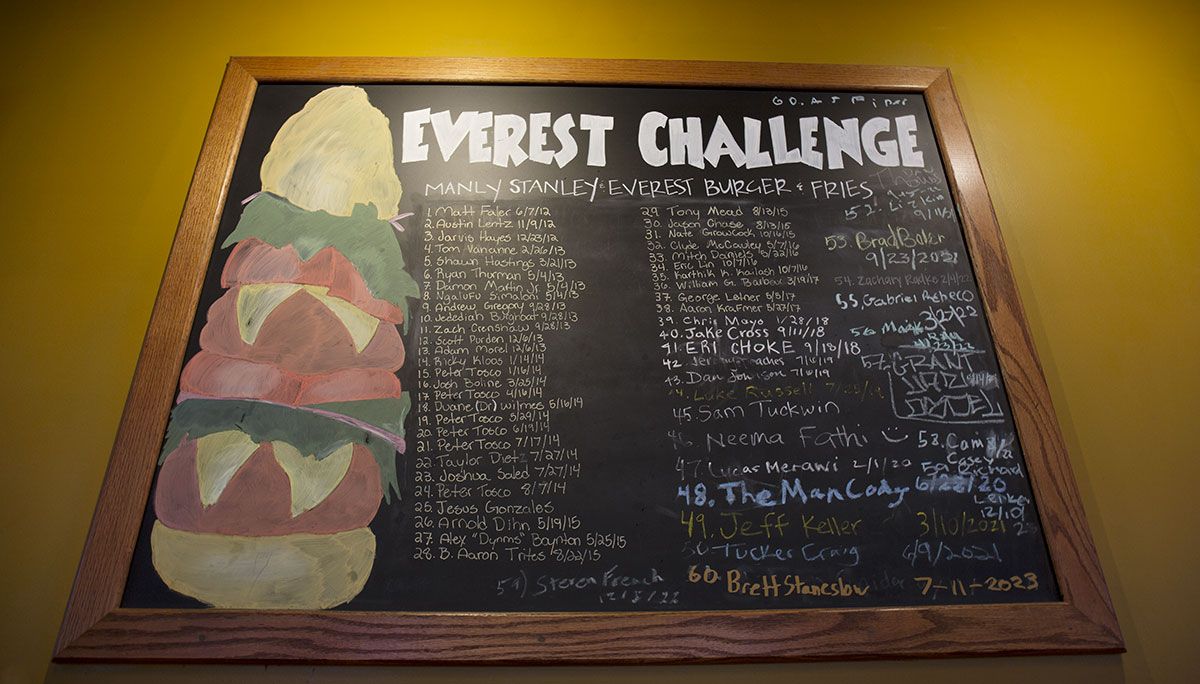 EVEREST CHALLENGE
MANLY STANLEY: EVEREST BURGER & FRIES
1. Matt Faler 6/7/12
2. Austin Lentz 11/9/12
3. Jarvis Hayes 12/23/12
4. Tom Varianne 2/26/13
5. Shawn Hastings 3/21/13
6. Ryan Thurman 5/4/13
7. Damon Martin Jr. 5/4/13
8. Ngalufu Simaloni 5/4/13
9. Andrew Gregory 9/28/13
10. Jedediah 9/28/13
11. Zach Crenshaw 9/28/13
12. Scott Purden 12/6/13
13. Adam Morel 12/6/13
14. Ricky Kloos 1/14/14
15. Peter Tosco 1/16/14
16. Josh Boline 3/25/14
17. Peter Tosco 4/16/14
18. Duane (Dr) Wilmes 5/16/14
19. Peter Tosco 5/29/14
20. Peter Tosco 6/19/14
21. Peter Tosco 7/17/14
22. Taylor Dietz 7/27/14
23. Joshua Saled 7/27/14
24. Peter Tosco 8/7/14
25. Jesus Gonzales
26. Arnold Dihn 5/19/15
27. Alex "Dynms" Boynton 5/25/15
28. B. Aaron Trites 8/22/15
29. Tony Mead 8/13/15
30. Jason Chase 8/13/15
31. Nate Growcock 10/16/15
32. Clyde McCauley 5/7/16
33. Mitch Daniels 5/22/16
34. Eric Lin 10/7/16
35. Karthik K. Kailash 10/7/16
36. William G. Balbour 3/19/17
37. George Lelner 5/5/17
38. Aaron Krafmer 5/27/17
39. Chris Mayo 1/28/18
40. Jake Cross 9/11/18
41. ERI CHOKE 9/18/18
42.
43. Dan Johnson 7/16/19
Luke Russell
45. Sam Tuckwin
46. Neema Fathi
47. Lucas Merawi 2/1/20
48. The Man Cody 6/22/20
49. Jeff Keller 3/10/2021
50. Tucker Craig 6/9/2021
60. Brett Staneslow 7-11-2023
52.
53. Brad Baker
9/23/2021
54. Zachary Radke
55. Gabriel Acheco
56.
57. GRANT
58.
59. Richard
59) Steven French
12/5/22